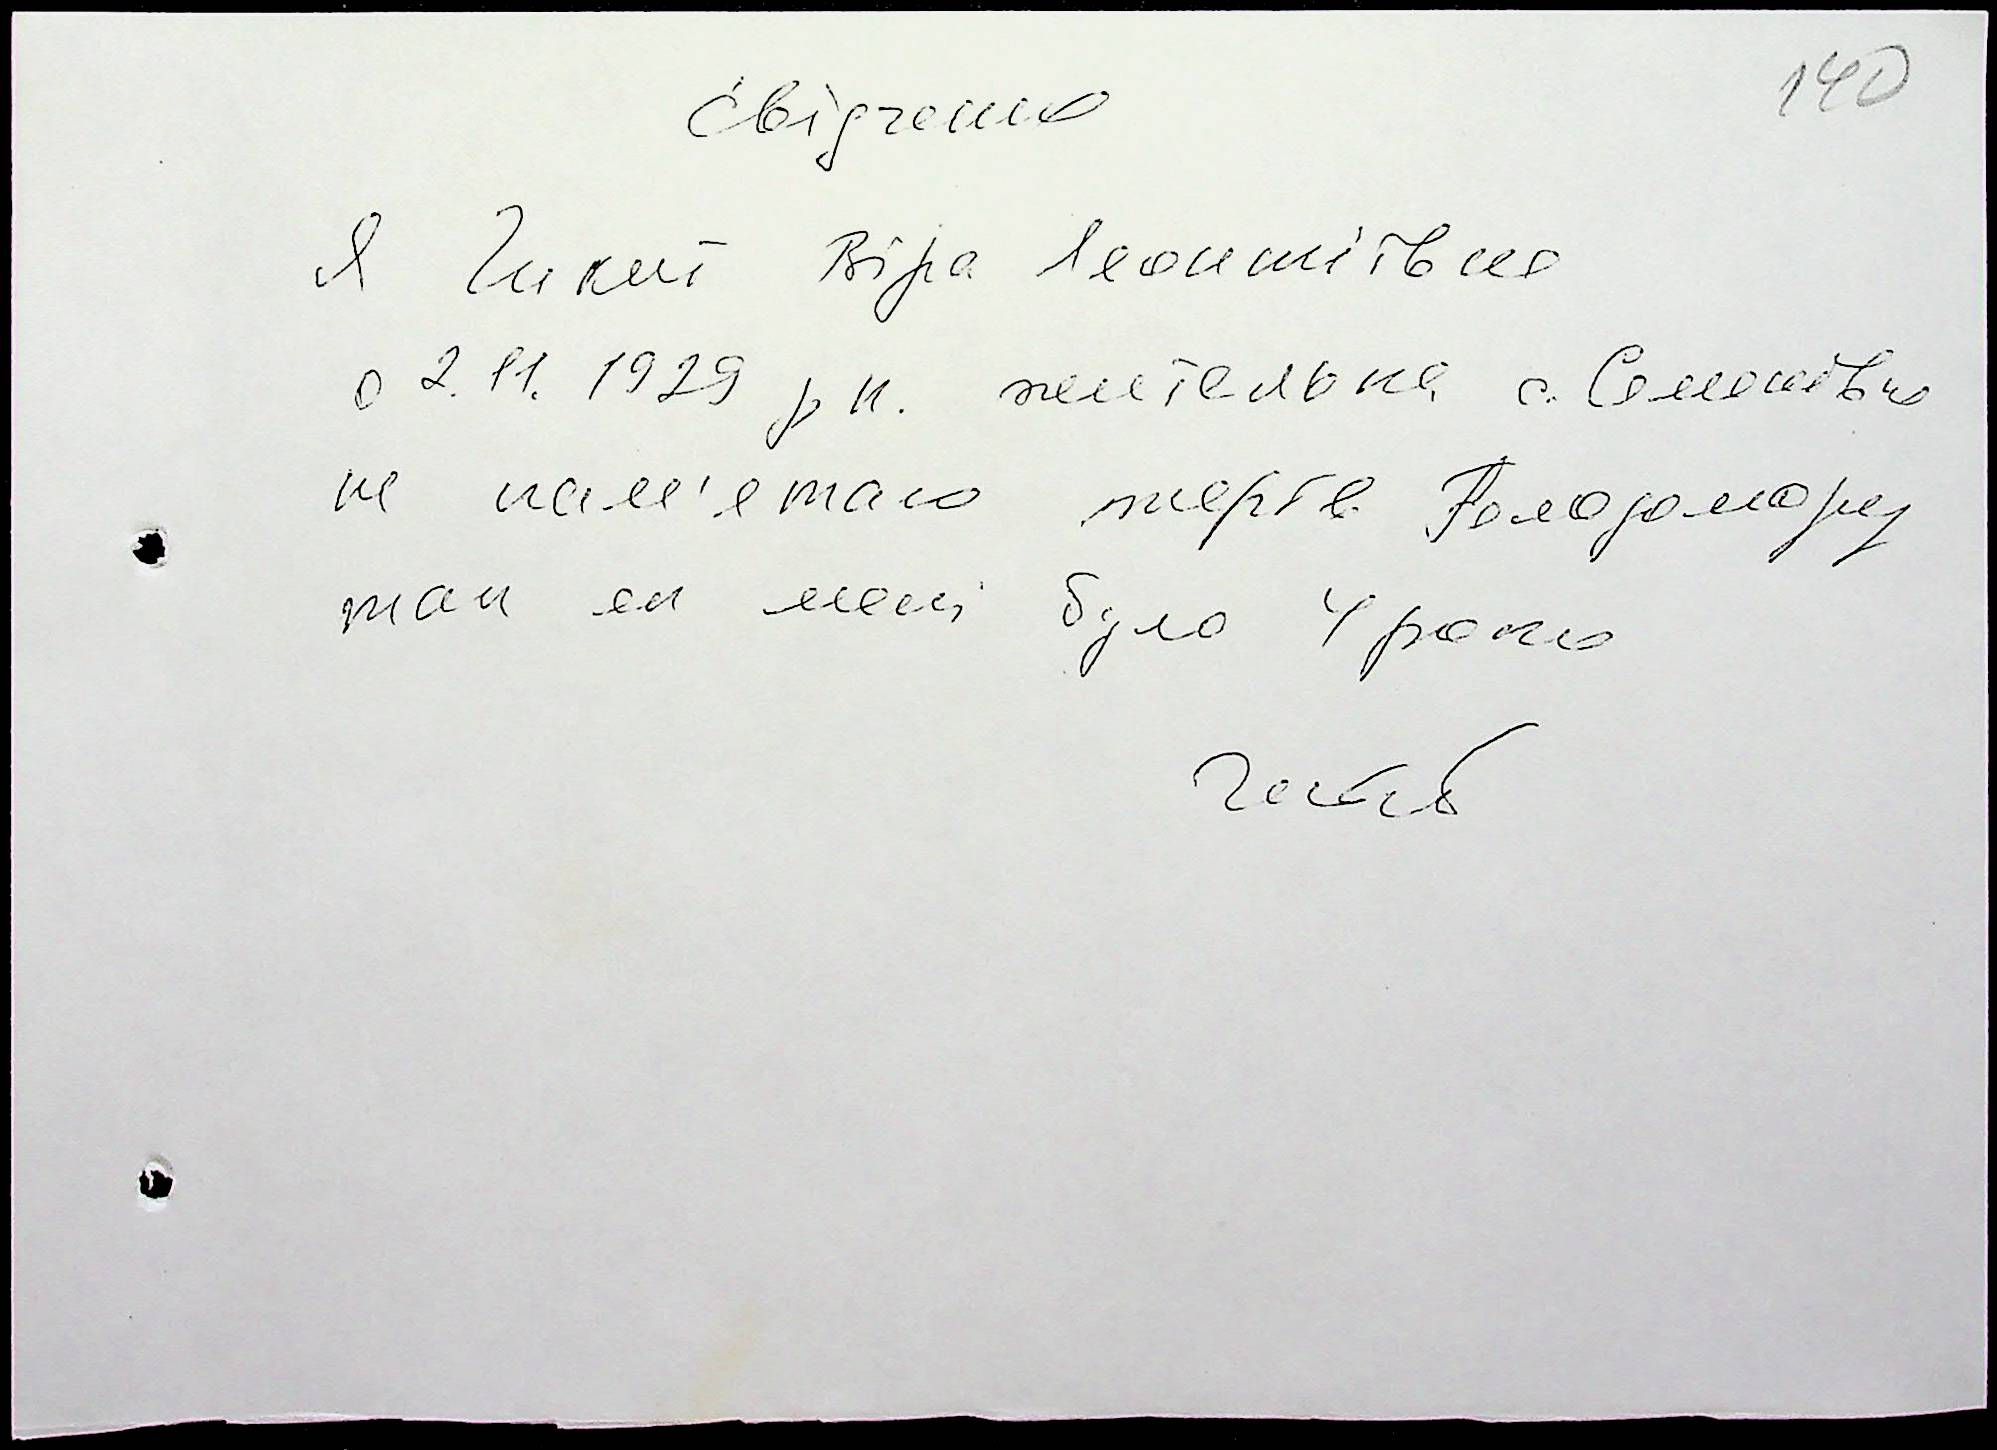 140
Свідчення
Я Чикит Віра Леонтіївна
02.11.1929 р н. жителька с. Семенівка
не пам'ятаю жертв Голодомору
так як мені було 4 роки